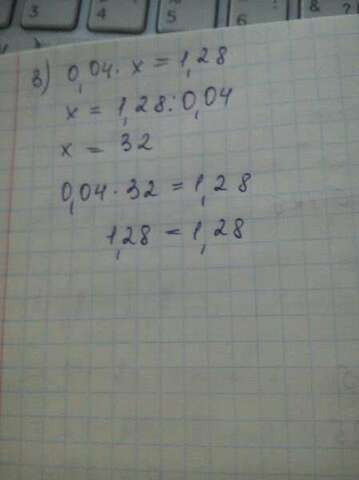 3 4 5 6 7 8 ?
3) 0,04 · x = 1,28
x = 1,28 : 0,04
x = 32
0,04 · 32 = 1,28
1,28 = 1,28